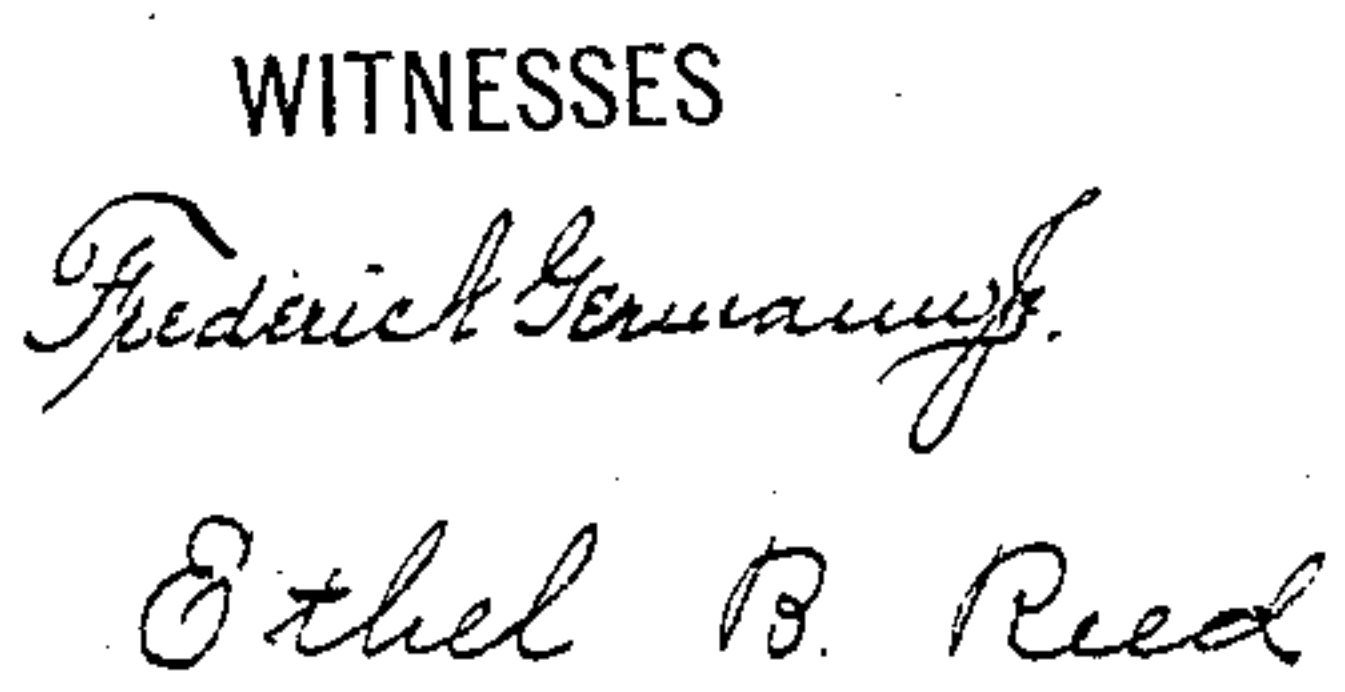 WITNESSES
Frederick Germann Jr.
Ethel B. Reed